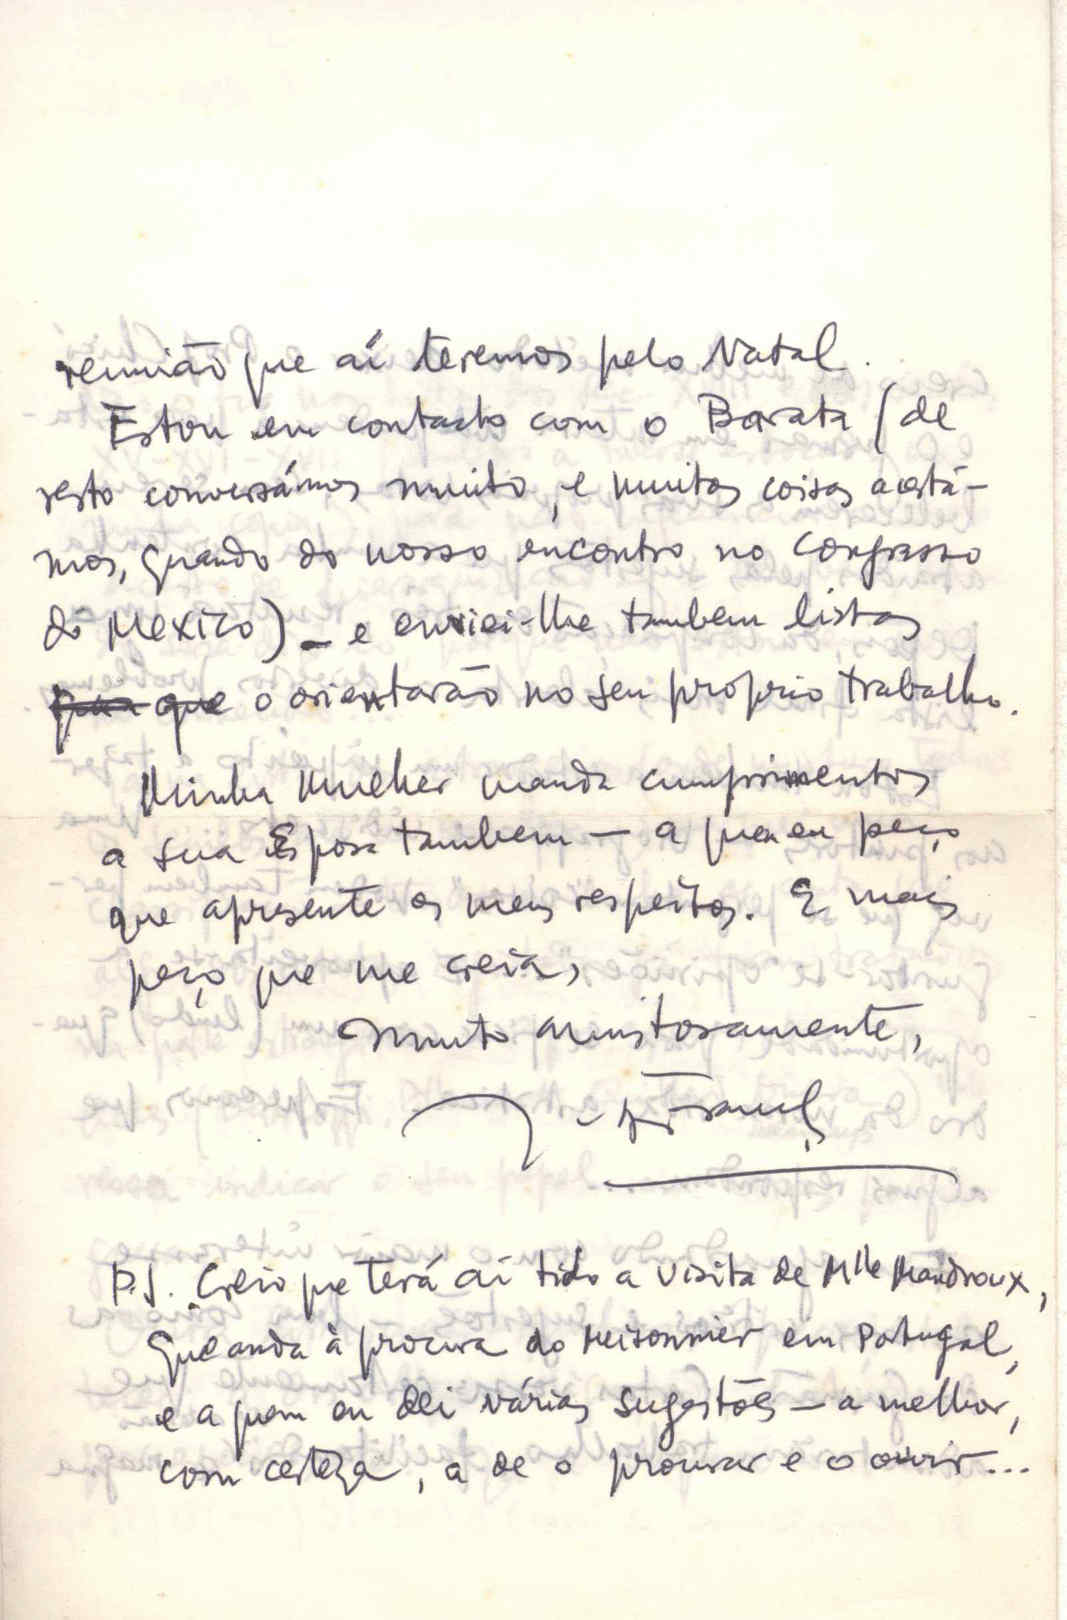 reunião que aí teremos pelo Natal.
Estou em contacto com o Barata (de
resto conversámos muito, e muitas coisas acertá-
mos, quando do nosso encontro no Congresso
do Mexico) - e enviei-lhe tambem listas
que o orientarão no seu proprio trabalho.
Minha Mulher manda cumprimentos
a sua Esposa tambem - a quem eu peço
que apresente os meus respeitos. E mais
peço que me creia,
Muito amistosamente,
P.S. Creio que terá aí tido a visita de Mlle Mandroux,
Que anda à procura do Meisonnier em Portugal,
e a quem eu dei várias sugestões - a melhor,
com certeza, a de o procurar e o ouvir...